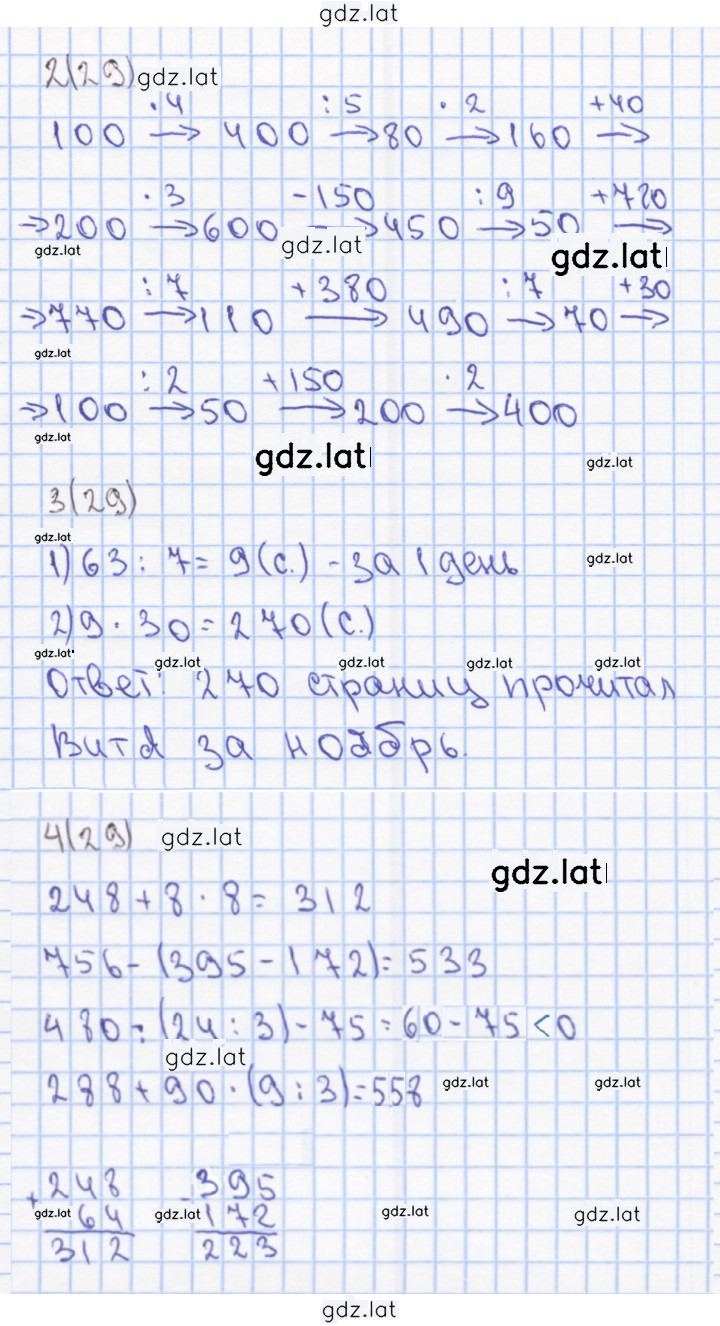 gdz.lat
2(29) gdz.lat
·4 :5 ·2 +40
100 → 400 → 80 → 160 →
·3 -150 :9 +720
→200 → 600 → 450 → 50 →
gdz.lat gdz.lat gdz.lat
:7 +380 :7 +30
→770 → 110 → 490 → 70 →
gdz.lat
:2 +150 ·2
→100 → 50 → 200 → 400
gdz.lat
gdz.lat gdz.lat
3(29)
gdz.lat
1) 63 : 7 = 9 (с.) - за 1 день gdz.lat
2) 9 · 30 = 270 (с.)
gdz.lat gdz.lat gdz.lat gdz.lat gdz.lat
Ответ: 270 страниц прочитал
Витя за ноябрь.
4(29) gdz.lat
gdz.lat
248 + 8 · 8 = 312
756 - (395 - 172) = 533
480 : (24 : 3) - 75 = 60 - 75 < 0
gdz.lat
288 + 90 · (9 : 3) = 558 gdz.lat gdz.lat
+ 248 - 395
64 172
gdz.lat gdz.lat gdz.lat gdz.lat
312 223
gdz.lat